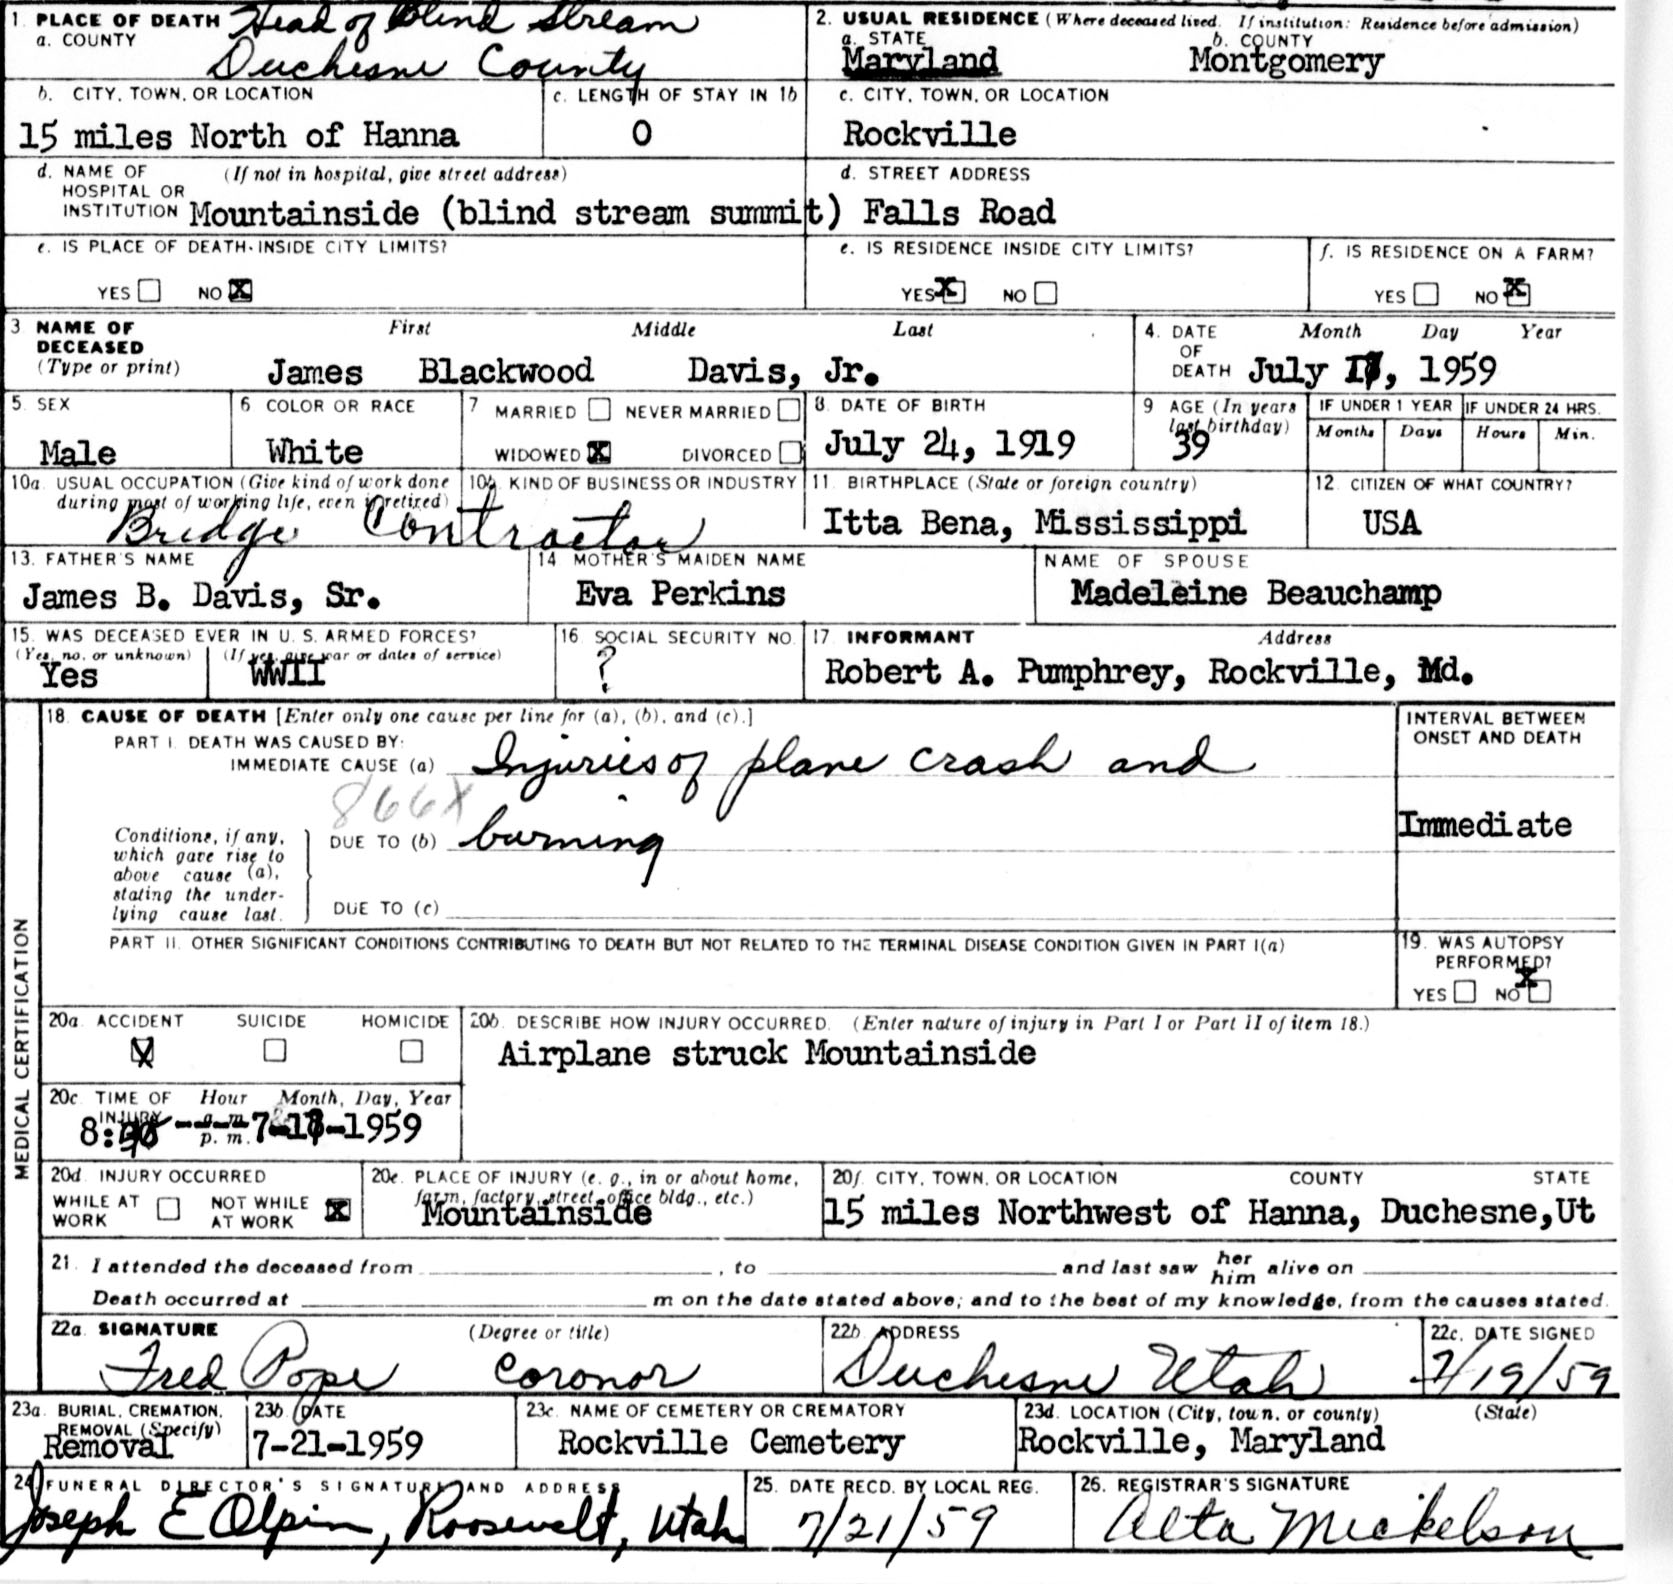 1. PLACE OF DEATH Head of Blind Stream
a. COUNTY Duchesne County
2. USUAL RESIDENCE (Where deceased lived. If institution: Residence before admission)
a. STATE b. COUNTY
Maryland Montgomery
b. CITY, TOWN, OR LOCATION c. LENGTH OF STAY IN 1b c. CITY, TOWN, OR LOCATION
15 miles North of Hanna 0 Rockville
d. NAME OF HOSPITAL OR INSTITUTION (If not in hospital, give street address) d. STREET ADDRESS
Mountainside (blind stream summit) Falls Road
e. IS PLACE OF DEATH INSIDE CITY LIMITS? e. IS RESIDENCE INSIDE CITY LIMITS? f. IS RESIDENCE ON A FARM?
YES NO X YES X NO YES NO X
3 NAME OF DECEASED (Type or print) First Middle Last 4. DATE OF DEATH Month Day Year
James Blackwood Davis, Jr. July , 1959
5. SEX 6 COLOR OR RACE 7 MARRIED NEVER MARRIED 8. DATE OF BIRTH 9 AGE (In years last birthday) IF UNDER 1 YEAR IF UNDER 24 HRS.
Months Days Hours Min.
Male White WIDOWED X DIVORCED July 24, 1919 39
10a. USUAL OCCUPATION (Give kind of work done during most of working life, even if retired) 10b. KIND OF BUSINESS OR INDUSTRY 11. BIRTHPLACE (State or foreign country) 12. CITIZEN OF WHAT COUNTRY?
Bridge Contractor Itta Bena, Mississippi USA
13. FATHER'S NAME 14 MOTHER'S MAIDEN NAME NAME OF SPOUSE
James B. Davis, Sr. Eva Perkins Madeleine Beauchamp
15. WAS DECEASED EVER IN U. S. ARMED FORCES? 16. SOCIAL SECURITY NO. 17. INFORMANT Address
(Yes, no, or unknown) (If yes, give war or dates of service)
Yes WWII ? Robert A. Pumphrey, Rockville, Md.
MEDICAL CERTIFICATION
18. CAUSE OF DEATH [Enter only one cause per line for (a), (b), and (c).] INTERVAL BETWEEN ONSET AND DEATH
PART I. DEATH WAS CAUSED BY:
IMMEDIATE CAUSE (a) Injuries of plane crash and
866X
Immediate
Conditions, if any, which gave rise to above cause (a), stating the underlying cause last.
DUE TO (b) burning
DUE TO (c)
PART II. OTHER SIGNIFICANT CONDITIONS CONTRIBUTING TO DEATH BUT NOT RELATED TO THE TERMINAL DISEASE CONDITION GIVEN IN PART I(a)
19. WAS AUTOPSY PERFORMED?
YES NO X
20a. ACCIDENT SUICIDE HOMICIDE 20b. DESCRIBE HOW INJURY OCCURRED. (Enter nature of injury in Part I or Part II of item 18.)
X Airplane struck Mountainside
20c. TIME OF INJURY Hour Month, Day, Year
a. m.
p. m.
8: 7- -1959
20d. INJURY OCCURRED 20e. PLACE OF INJURY (e. g., in or about home, farm, factory, street, office bldg., etc.) 20f. CITY, TOWN, OR LOCATION COUNTY STATE
WHILE AT WORK NOT WHILE AT WORK X Mountainside 15 miles Northwest of Hanna, Duchesne,Ut
21. I attended the deceased from , to and last saw her him alive on
Death occurred at m on the date stated above; and to the best of my knowledge, from the causes stated.
22a. SIGNATURE (Degree or title) 22b. ADDRESS 22c. DATE SIGNED
Fred Pope Coronor Duchesne Utah 7/19/59
23a. BURIAL, CREMATION, REMOVAL (Specify) 23b. DATE 23c. NAME OF CEMETERY OR CREMATORY 23d. LOCATION (City, town, or county) (State)
Removal 7-21-1959 Rockville Cemetery Rockville, Maryland
24. FUNERAL DIRECTOR'S SIGNATURE AND ADDRESS 25. DATE RECD. BY LOCAL REG. 26. REGISTRAR'S SIGNATURE
Joseph E Olpin, Roosevelt, Utah 7/21/59 Alta Mickelson